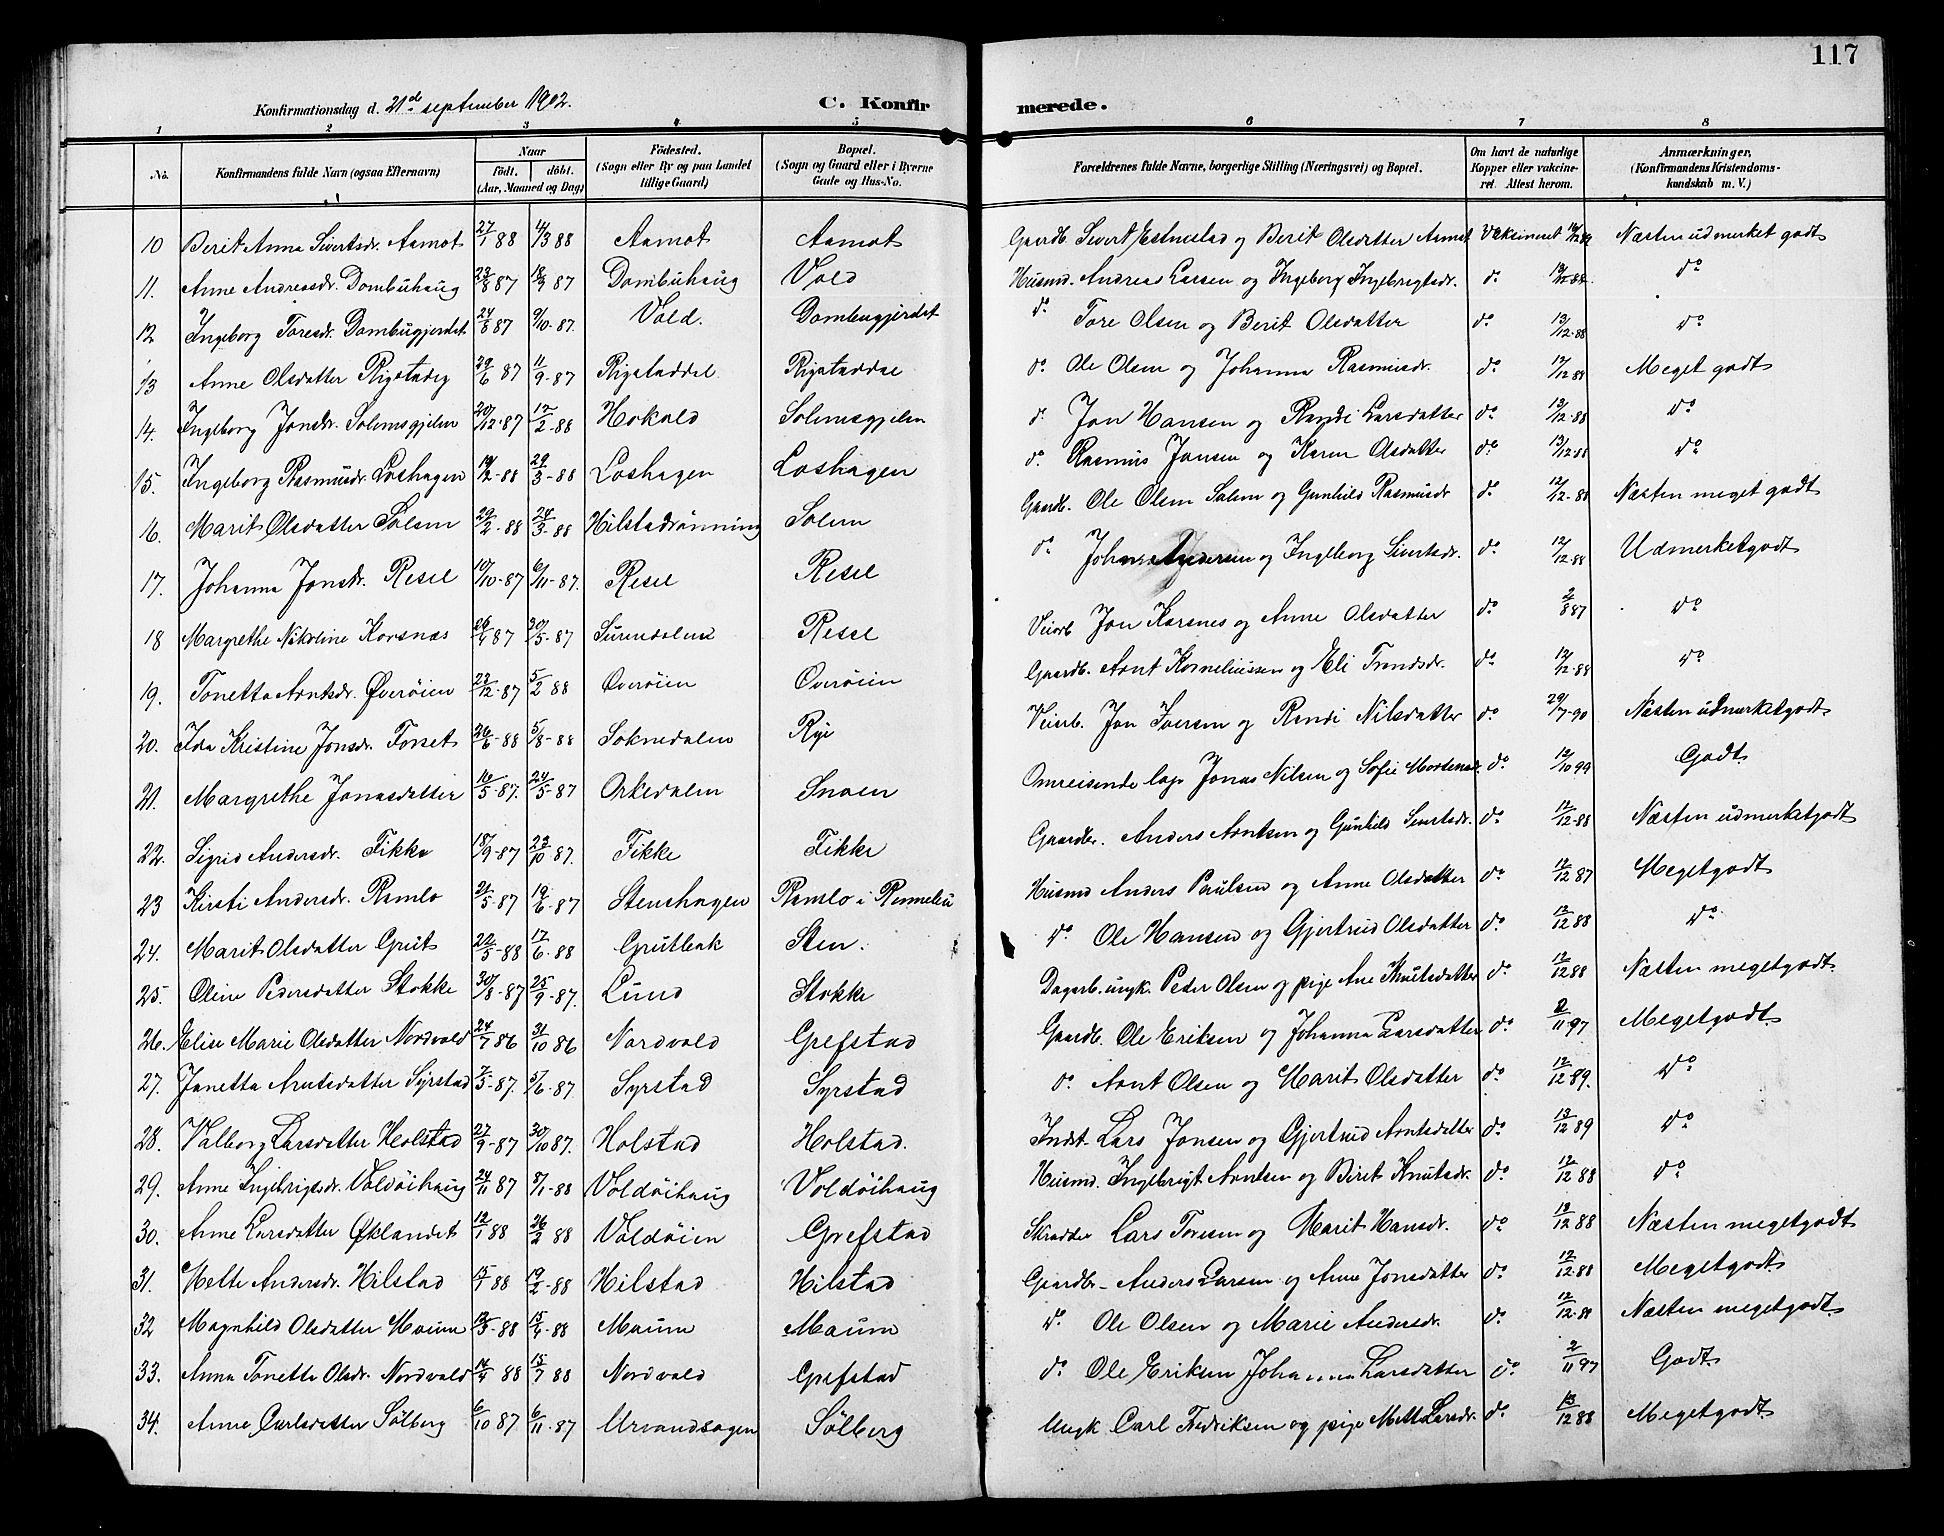 117
Konfirmationsdag d. 21de september 1902.
C. Konfirmerede.
1 2 3 4 5 6 7 8
No. Konfirmandens fulde Navn (ogsaa Efternavn) Naar födt. döbt. (Aar, Maaned og Dag) Födested. (Sogn eller By og paa Landet lillige Gaard) Bopæl. (Sogn og Gaard eller i Byerne Gade og Hus-No. Forældrenes fulde Navne, borgerlige Stilling (Næringsvei) og Bopæl. Om havt de naturlige Kopper eller vakcineret. Attest herom. Anmærkninger, (Konfirmandens Kristendomskundskab m. V.)
10 Berit Anna Sivertsdr. Aamot 27/1 88 4/3 88 Aamot Aamot Gaardb. Sivert Estnestad og Berit Olsdatter Aamot Vaksineret Næsten udmerket godt
11. Anne Andreasdr. Dombuhaug 23/8 87 18/9 87 Dombuhaug Vold Husmd. Andreas Larsen og Ingeborg Ingebrigtsdr. do do
12 Ingeborg Toresdr. Dombugjerdet 24/8 87 9/10-87. Vold. Dombugjerdet do Tore Olsen og Berit Olsdatter do 13/12-88 do
13 Anne Olsdatter Rigstadeg 29/6 87 11/9-87 Rigstaddal Rigstaddal do. Ole Olsen og Johanna Rasmusdr. do 12/12-88 Meget godt
14. Ingeborg Jonsdr. Solemsgjelen 20/12-87 12/2-88 Hokald Solemsgjelen d. Jon Hansen og Randi Larsdatter do 12/12-88 do
15. Ingeborg Rasmusdr. Loshagen 14/2-88 29/3-88 Loshagen Loshagen do. Rasmus Jonsen og Karen Olsdatter do 13/12-88 do
16. Marit Olsdatter Solem 29/2-88 24/3-88 Hilstadrønning Solem Gaardb. Ole Olsen Solem og Gunhild Rasmusdr do 12/12-88 Næsten meget godt
17. Johanna Jonsdr. Resel 10/10-87 6/11-87. Resel Resel do Johan Andersen og Ingeborg Sivertsdr. do 12/12-88 Udmerketgodt
18 Margrethe Nikoline Korsnæs 26/4 87 30/5-87 Surendalen Resel Veiarb Jon Korsnes og Anne Olsdatter do 2/8 87 do
19. Tonetta Arntsdr. Øverøien 23/12-87 5/2 88 Øverøien Øverøien Gaardb. Arnt Korneliussen og Eli Trondsdr. do 12/12-88 do
20. Ida Kristine Jonsdr. Forset 26/6-88 5/8-88 Soknedalen Rye Veiarb. Jon Iversen og Randi Nilsdatter do 29/7-90 Næsten udmerketgodt
21. Margrethe Jonasdatter 16/5-87. 24/5-87 Orkedalen Snoen Omreisende lap Jonas Nilsen og Sofie Mortensd. do 12/10 99 Godt
22. Sigrid Andersdr. Fikke 18/9-87 23/10 87. Fikke Fikke Gaardbr. Anders Arntsen og Gunhild Sivertsdr. do 12/12-88 Næsten udmerketgodt
23 Kirsti Andersdr. Ramlo 21/5-87 19/6-87 Stenshagen Ramlo i Rennebu Husmd Anders Paulsen og Anne Olsdatter do 12/12 87 Megetgodt
24. Marit Olsdatter Grut 22/5-88 17/6-88 Grutbak Sten. do Ole Hansen og Gjertrud Olsdatter do 12/12 88 do
25. Oline Pedersdatter Stokke 30/8-87 25/9-87. Lund Stokke Dagarb. ungk. Peder Olsen og pige Ane Knutsdatter do 12/12 88 Næsten megetgodt
26. Elise Marie Olsdatter Nordvold 24/7 86 31/10 86 Nordvold Grefstad Gaardb. Ole Eriksen og Johanna Larsdatter do 2/11 97 Megetgodt.
27. Janetta Arntsdatter Syrstad 7/5-87. 5/6-87 Syrstad Syrstad do. Arnt Olsen og Marit Olsdatter do 12/12 89. do
28. Valborg Larsdatter Holstad 27/9-87 30/10 87. Holstad Holstad. Indst. Lars Jonsen og Gjertrud Arntsdatter do 12/12 89 do
29. Anne Ingebrigtsdr. Voldøihaug 24/11 87 8/1-88 Voldøihaug Voldøihaug Husmd. Ingebrigt Arntsen og Berit Knutsdr. do 12/12 88 do
30. Anne Larsdatter Øklandet 12/1 88 26/2 88 Voldøien Grefstad Skrædder Lars Toresen og Marit Hansdr. do 12/12 88 Næsten megetgodt
31. Mette Andersdr. Hilstad 15/1 88 19/2-88 Hilstad Hilstad Gaardbr- Anders Larsen og Anne Jonsdatter do 12/12-88 Megetgodt
32 Magnhild Olsdatter Moum 13/3-88 15/4-88 Moum Moum do Ole Olsen og Marie Andersdr. do. 12/12-88 Næsten megetgodt
33. Anna Tonette Olsdr. Nordvold 14/4 88 15/7 88 Nordvold Grefstad do Ole Eriksen Johanna Larsdatter do 2/11 97 Godt
34. Anne Carlsdatter Sölberg 6/10 87 6/11-87 Urvandsogen Sölberg Ungk Carl Fredriksen og pige M M Larsdr. do 12/12 88 Megetgodt